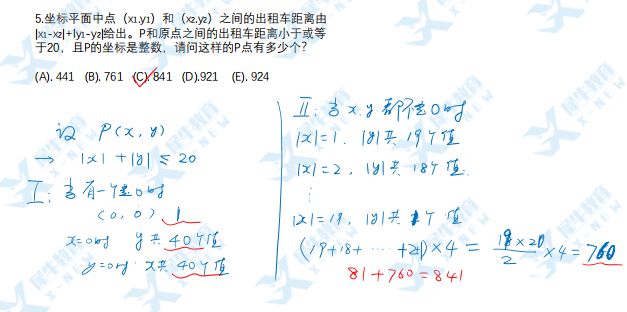 5.坐标平面中点（x₁,y₁）和（x₂,y₂）之间的出租车距离由
|x₁-x₂|+|y₁-y₂|给出。P和原点之间的出租车距离小于或等
于20，且P的坐标是整数，请问这样的P点有多少个？
(A). 441 (B). 761 (C). 841 (D).921 (E). 924
设 P(x, y)
→ |x| + |y| ≤ 20
I: 当有一个是0时
(0, 0) 1
x=0时 y共40个值
y=0时 x共40个值
II: 当x.y都不是0时
|x|=1, |y|共19个值
|x|=2, |y|共18个值
⋮
|x|=19, |y|共1个值
(19+18+ ⋯ +1)×4 = 19×20/2 ×4 = 760
81+760=841
犀牛教育
X-NEW